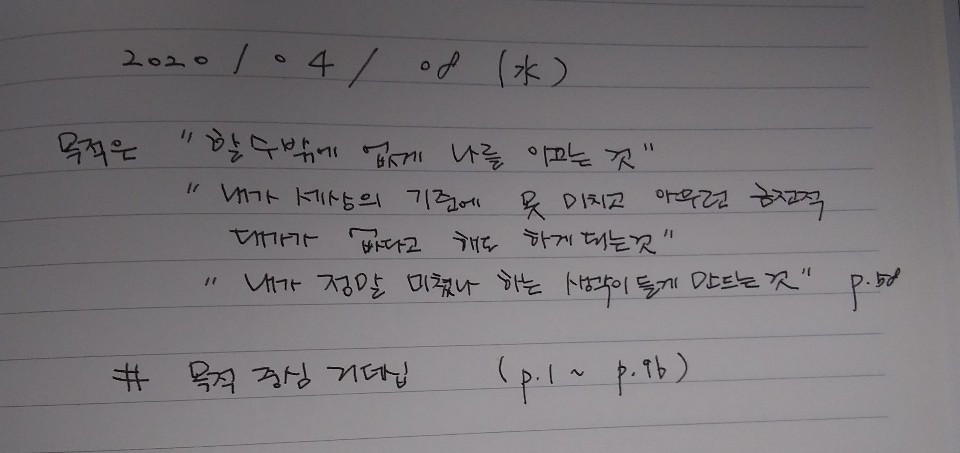 2020 / 04 / 08 (水)
목적은 "할 수밖에 없게 나를 이끄는 것"
"내가 세상의 기준에 못 미치고 아무런 금전적
대가가 없다고 해도 하게 되는것"
"내가 정말 미쳤나 하는 생각이 들게 만드는 것" p.58
# 목적 중심 리더십 (p.1 ~ p.96)